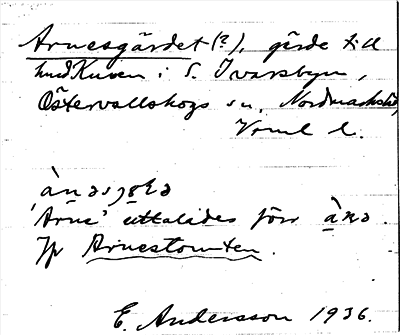 Arnesgärdet (?), gärde till
Kuven i S. Ivarsbyn,
Östervallskogs sn, Nordmarks hd,
Vrml l.
'Arne' uttalades förr ànə.
Jfr Arnestomten.
E. Andersson 1936.